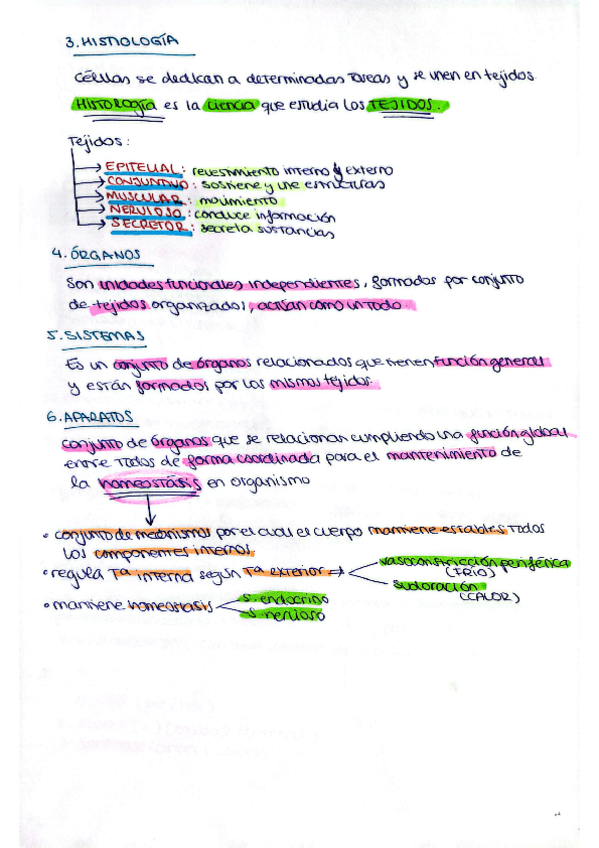 3. HISTIOLOGÍA
Células se dedican a determinadas tareas y se unen en tejidos.
HISTOLOGÍA es la ciencia que estudia los TEJIDOS.
Tejidos:
EPITELIAL: revestimiento interno y externo
CONJUNTIVO: sostiene y une estructuras
MUSCULAR: movimiento
NERVIOSO: conduce información
SECRETOR: secreta sustancias
4. ÓRGANOS
Son unidades funcionales independientes, formados por conjunto
de tejidos organizados, actúan como un todo.
5. SISTEMAS
Es un conjunto de órganos relacionados que tienen función general
y están formados por los mismos tejidos.
6. APARATOS
conjunto de órganos que se relacionan cumpliendo una función global
entre todos de forma coordinada para el mantenimiento de
la homeostásis en organismo
• conjunto de mecanismos por el cual el cuerpo mantiene estables todos
los componentes internos.
• regula Tª interna según Tª exterior ⇒ vasoconstricción periférica
(FRÍO)
sudoración
(CALOR)
• mantiene homeostasis s. endocrino
s. nervioso